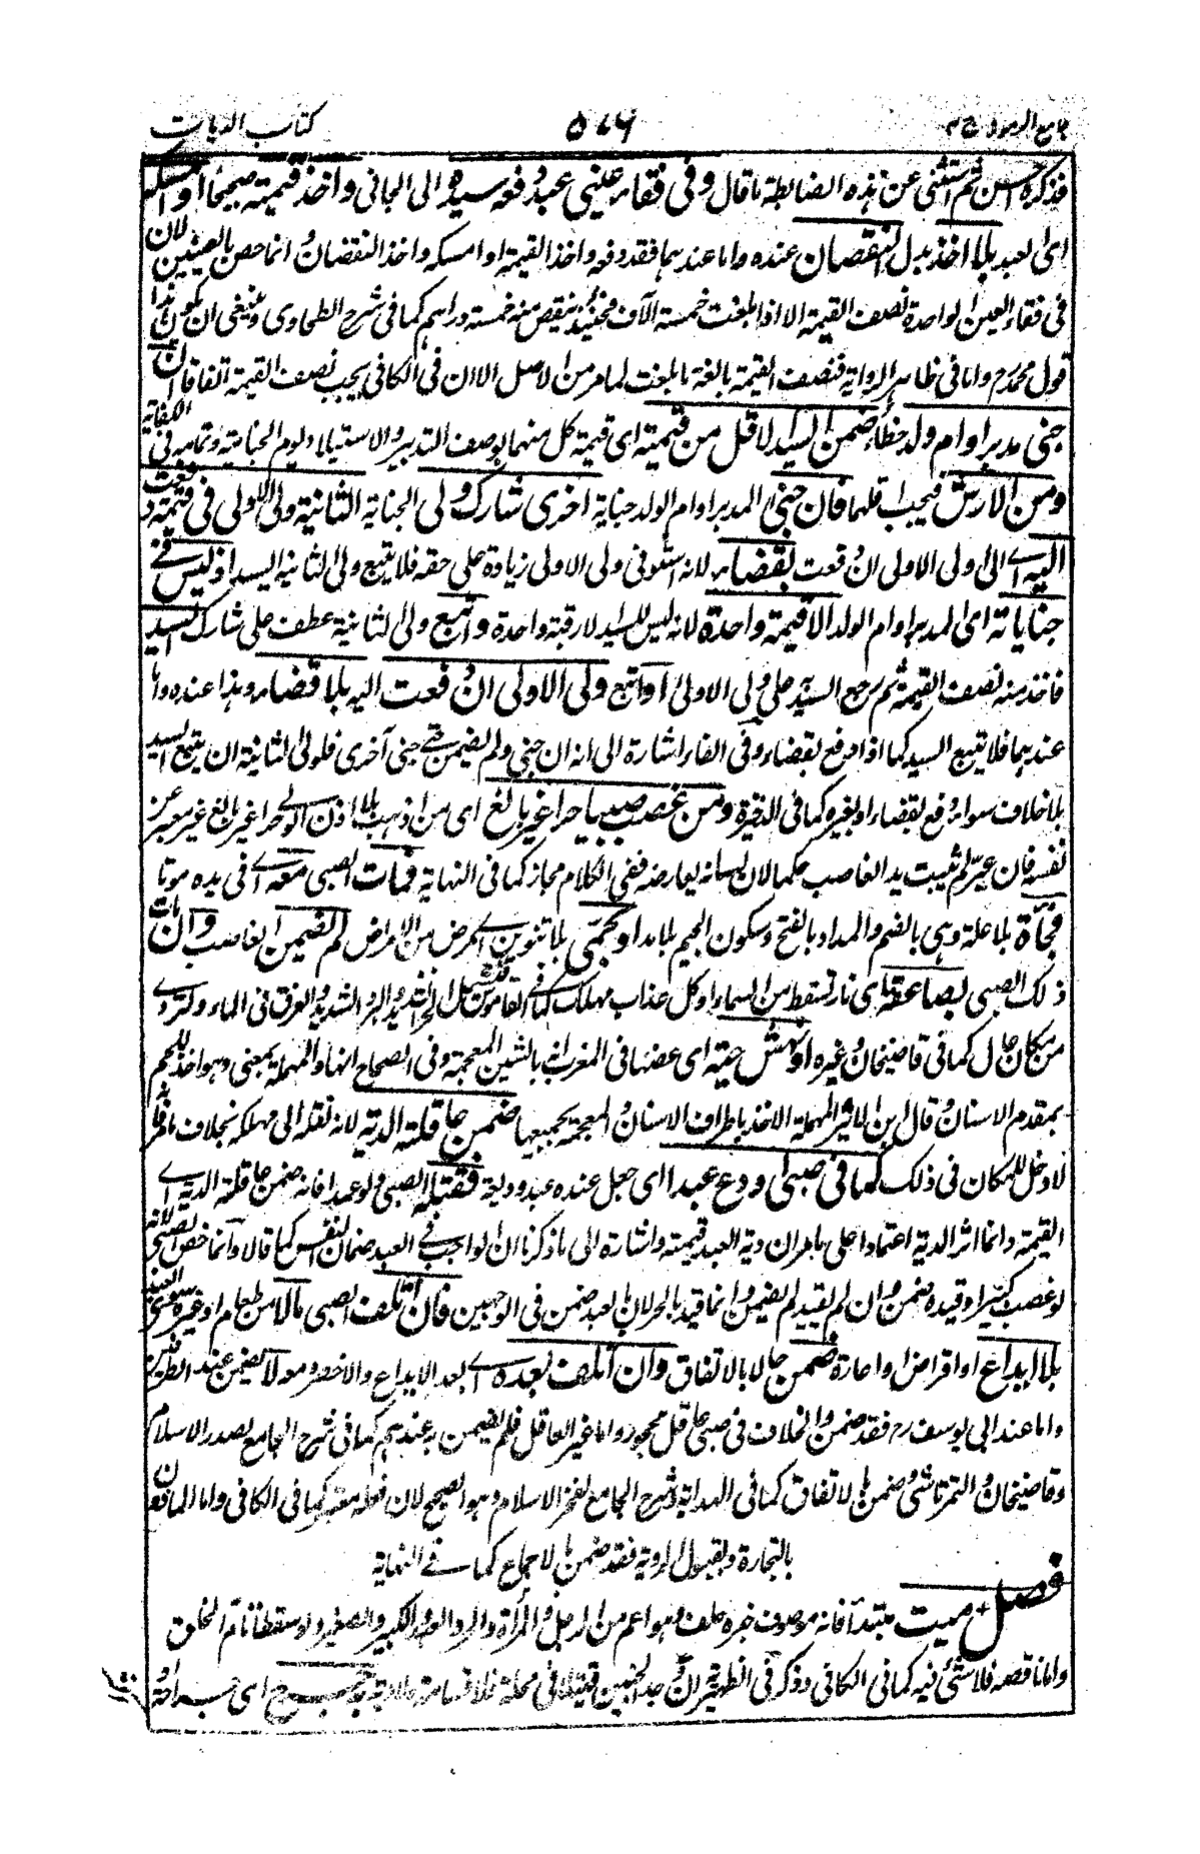 جامع الرموز ج ٢ ٥٧٦ كتاب الديات
فذكره احسن ثم استثنى عن هذه الضابطة ما قال وفى فقاء عينى عبد دفعه سيده الى الجانى واخذ قيمته صحيحا او امسكه
اى العبد بلا اخذ بدل النقصان عنده واما عندهما فقد دفعه واخذ القيمة او امسكه واخذ النقصان وانما خص بالعينين لان
فى فقاء العين الواحدة نصف القيمة الا اذا بلغت خمسة الآف فحينئذ ينقص منه خمسة دراهم كما فى شرح الطحاوى وينبغى ان يكون هذا
قول محمد رح واما فى ظاهر الرواية فنصف القيمة بالغة ما بلغت لما مر من الاصل الا ان فى الكافى يجب نصف القيمة اتفاقا وان
جنى مدبر او ام ولد خطأ ضمن السيد الاقل من قيمته اى قيمة كل منهما بوصف التدبير والاستيلاد يوم الجناية وتمامه فى الكفاية
ومن الارش فيجب اقلهما فان جنى المدبر او ام الولد جناية اخرى شارك ولى الجناية الثانية ولى الاولى فى قيمته دفعت
اليه اى الى ولى الاولى ان دفعت بقضاء لانه استوفى ولى الاولى زيادة على حقه فلا يتبع ولى الثانية السيد اذ ليس فى
جناياته اى المدبر او ام الولد الا قيمة واحدة لانه ليس للسيد الا رقبة واحدة واتبع ولى الثانية عطف على شارك السيد
فاخذ منه نصف القيمة ثم رجع السيد على ولى الاولى او اتبع ولى الاولى ان دفعت اليه بلا قضاء وهذا عنده واما
عندهما فلا يتبع السيد كما اذا دفع بقضاء وفى الفاء اشارة الى انه ان جنى ولم يضمن حتى جنى آخرى فلولى الثانية ان يتبع السيد
بلا خلاف سواء دفع بقضاء او بغيره كما فى الذخيرة ومن غصب صبيا حرا غير بالغ اى من اذهب بلا اذن الولى حرا غير بالغ غير معبر عن
نفسه فان عبر لم تثبت يد الغاصب حكما لان لسانه يعارضه ففى الكلام مجاز كما فى النهاية فمات الصبى معه اى فى يده موتا
فجأة بلا علة وهى بالضم والمد او بالفتح وسكون الجيم بلا مد او بحمى بلا تنوين اى مرض من الامراض لم يضمن الغاصب وان مات
ذلك الصبى بصاعقة اى نار تسقط من السماء او كل عذاب مهلك كما فى القاموس الحر الشديد والبرد الشديد والغرق فى الماء والتردى
من مكان عال كما فى قاضيخان وغيره او نهش حية اى عضها فى المغرب انه بالشين المعجمة وفى الصحاح انها والمهملة بمعنى وهو اخذ اللحم
بمقدم الاسنان وقال ابن الاثير المهملة الاخذ باطراف الاسنان والمعجمة بجميعها ضمن عاقلته الدية لانه نقله الى مهلكه بخلاف ما مر فلا
لا دخل للمكان فى ذلك كما فى صبى اودع عبدا اى جعل عنده عبد وديعة فقتله الصبى ولو عمدا فانه ضمن عاقلته الدية اى
القيمة وانما اثر الدية اعتمادا على ما مر ان دية العبد قيمته واشارة الى ما ذكرنا ان الواجب فى العبد ضمان النفس كما قالا وانما خص الصبى لانه
لو غصب كبيرا وقيده ضمن وان لم يقيد لم يضمن وانما قيد بالحر لان بالعبد ضمن فى الوجهين فان اتلف الصبى مالا من طعام او غيره سوى العبد
بلا ايداع او اقراض او اعارة ضمن حالا بالاتفاق وان اتلف بعده اى بعد الايداع والاخصر معه لا يضمن عند الطرفين
واما عند ابى يوسف رح فقد ضمن والخلاف فى صبى عاقل محجور واما غير العاقل فلم يضمن عندهم كما فى شرح الجامع لصدر الاسلام
وقاضيخان والتمرتاشى وضمن بالاتفاق كما فى الهداية وشرح الجامع لفخر الاسلام وهو الصحيح لان فعله معتبر كما فى الكافى واما الماذون
بالتجارة وبقبول الوديعة فقد ضمن بالاجماع كما فى النهاية
فصل ميت مبتدأ فانه موصوف خبره حلف وهو اعم من الرجل والمرأة والحر والعبد والكبير والصغير ولو سقطا تام الخلق
واما ناقصه فلا شئ فيه كما فى الكافى وذكر فى الظهيرية ان وجد الجنين قتيلا فى محلة فلا قسامة ولا دية به جرح اى جراحة او